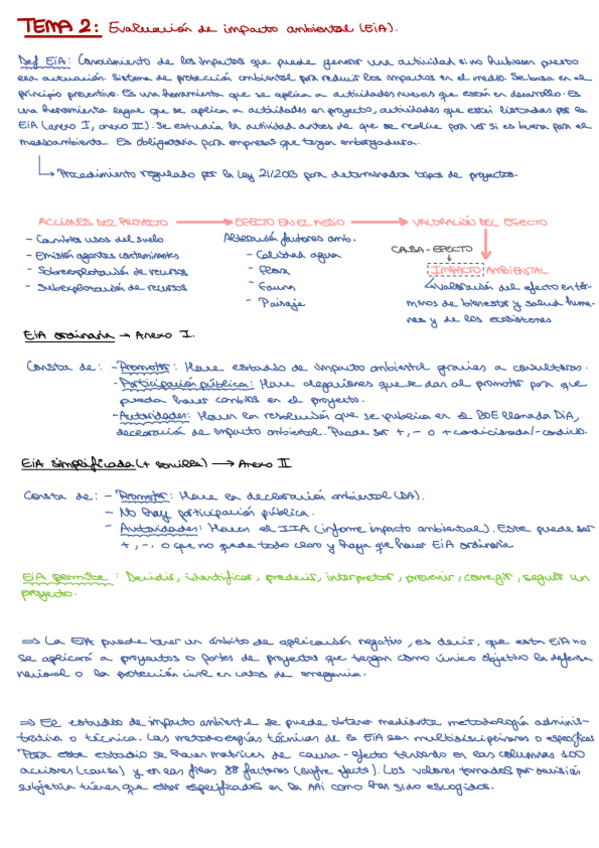 TEMA 2: Evaluación de impacto ambiental (EiA).
Def EiA: Conocimiento de los impactos que puede generar una actividad si no hubiesen puesto
esa actuación. Sistema de protección ambiental para reducir los impactos en el medio. Se basa en el
principio preventivo. Es una herramienta que se aplica a actividades nuevas que están en desarrollo. Es
una herramienta legal que se aplica a actividades en proyecto, actividades que están listadas por la
EiA (anexo I, anexo II). Se estudia la actividad antes de que se realice para ver si es buena para el
medioambiente. Es obligatoria para empresas que tengan embergadura.
Procedimiento regulado por la Ley 21/2013 para determinados tipos de proyectos.
ACCIONES DEL PROYECTO → EFECTO EN EL MEDIO → VALORACIÓN DEL EFECTO
- Cambios usos del suelo
- Emisión agentes contaminantes
- Sobreexplotación de recursos
- Subexplotación de recursos
Alteración factores amb.
- Calidad agua
- Flora
- Fauna
- Paisaje
CAUSA-EFECTO
IMPACTO AMBIENTAL
Valoración del efecto en tér-
minos de bienestar y salud huma-
nas y de los ecosistemas
EiA ordinaria → Anexo I.
Consta de: - Promotor: Hace estudio de impacto ambiental gracias a consultoras.
- Participación pública: Hace alegaciones que se dan al promotor para que
pueda hacer cambios en el proyecto.
- Autoridades: Hacen la resolución que se publica en el BOE llamada DiA,
declaración de impacto ambiental. Puede ser +, - o + condicionada/-condic.
EiA simplificada (+ sencilla) → Anexo II
Consta de: - Promotor: Hace la declaración ambiental (DA).
- No hay participación pública.
- Autoridades: Hacen el IIA (informe impacto ambiental). Este puede ser
+, -, o que no quede todo claro y haya que hacer EiA ordinaria
EiA permite: Decidir, identificar, predecir, interpretar, prevenir, corregir, seguir un
proyecto.
⇒ La EiA puede tener un ámbito de aplicación negativo, es decir, que esta EiA no
se aplicará a proyectos o partes de proyectos que tengan como único objetivo la defensa
nacional o la protección civil en casos de emergencia.
⇒ El estudio de impacto ambiental se puede obtener mediante metodología adminis-
trativa o técnica. Las metodologías técnicas de la EiA son multidisciplinares o específicas
Para este estudio se hacen matrices de causa-efecto teniendo en las columnas 100
acciones (causa) y en las filas 88 factores (sufre efecto). Los valores tomados por decisión
subjetiva tienen que estar especificados en la AAi como han sido escogidos.